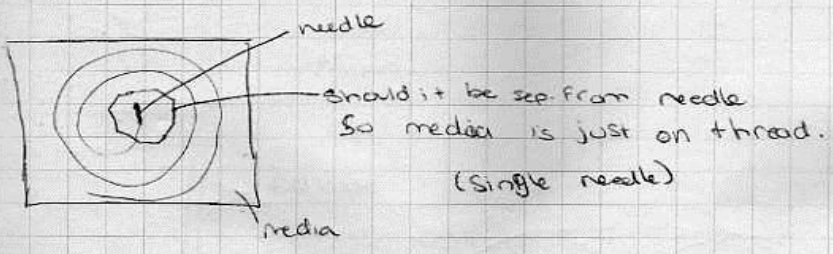 needle
should it be sep. from needle
So media is just on thread.
(single needle)
media